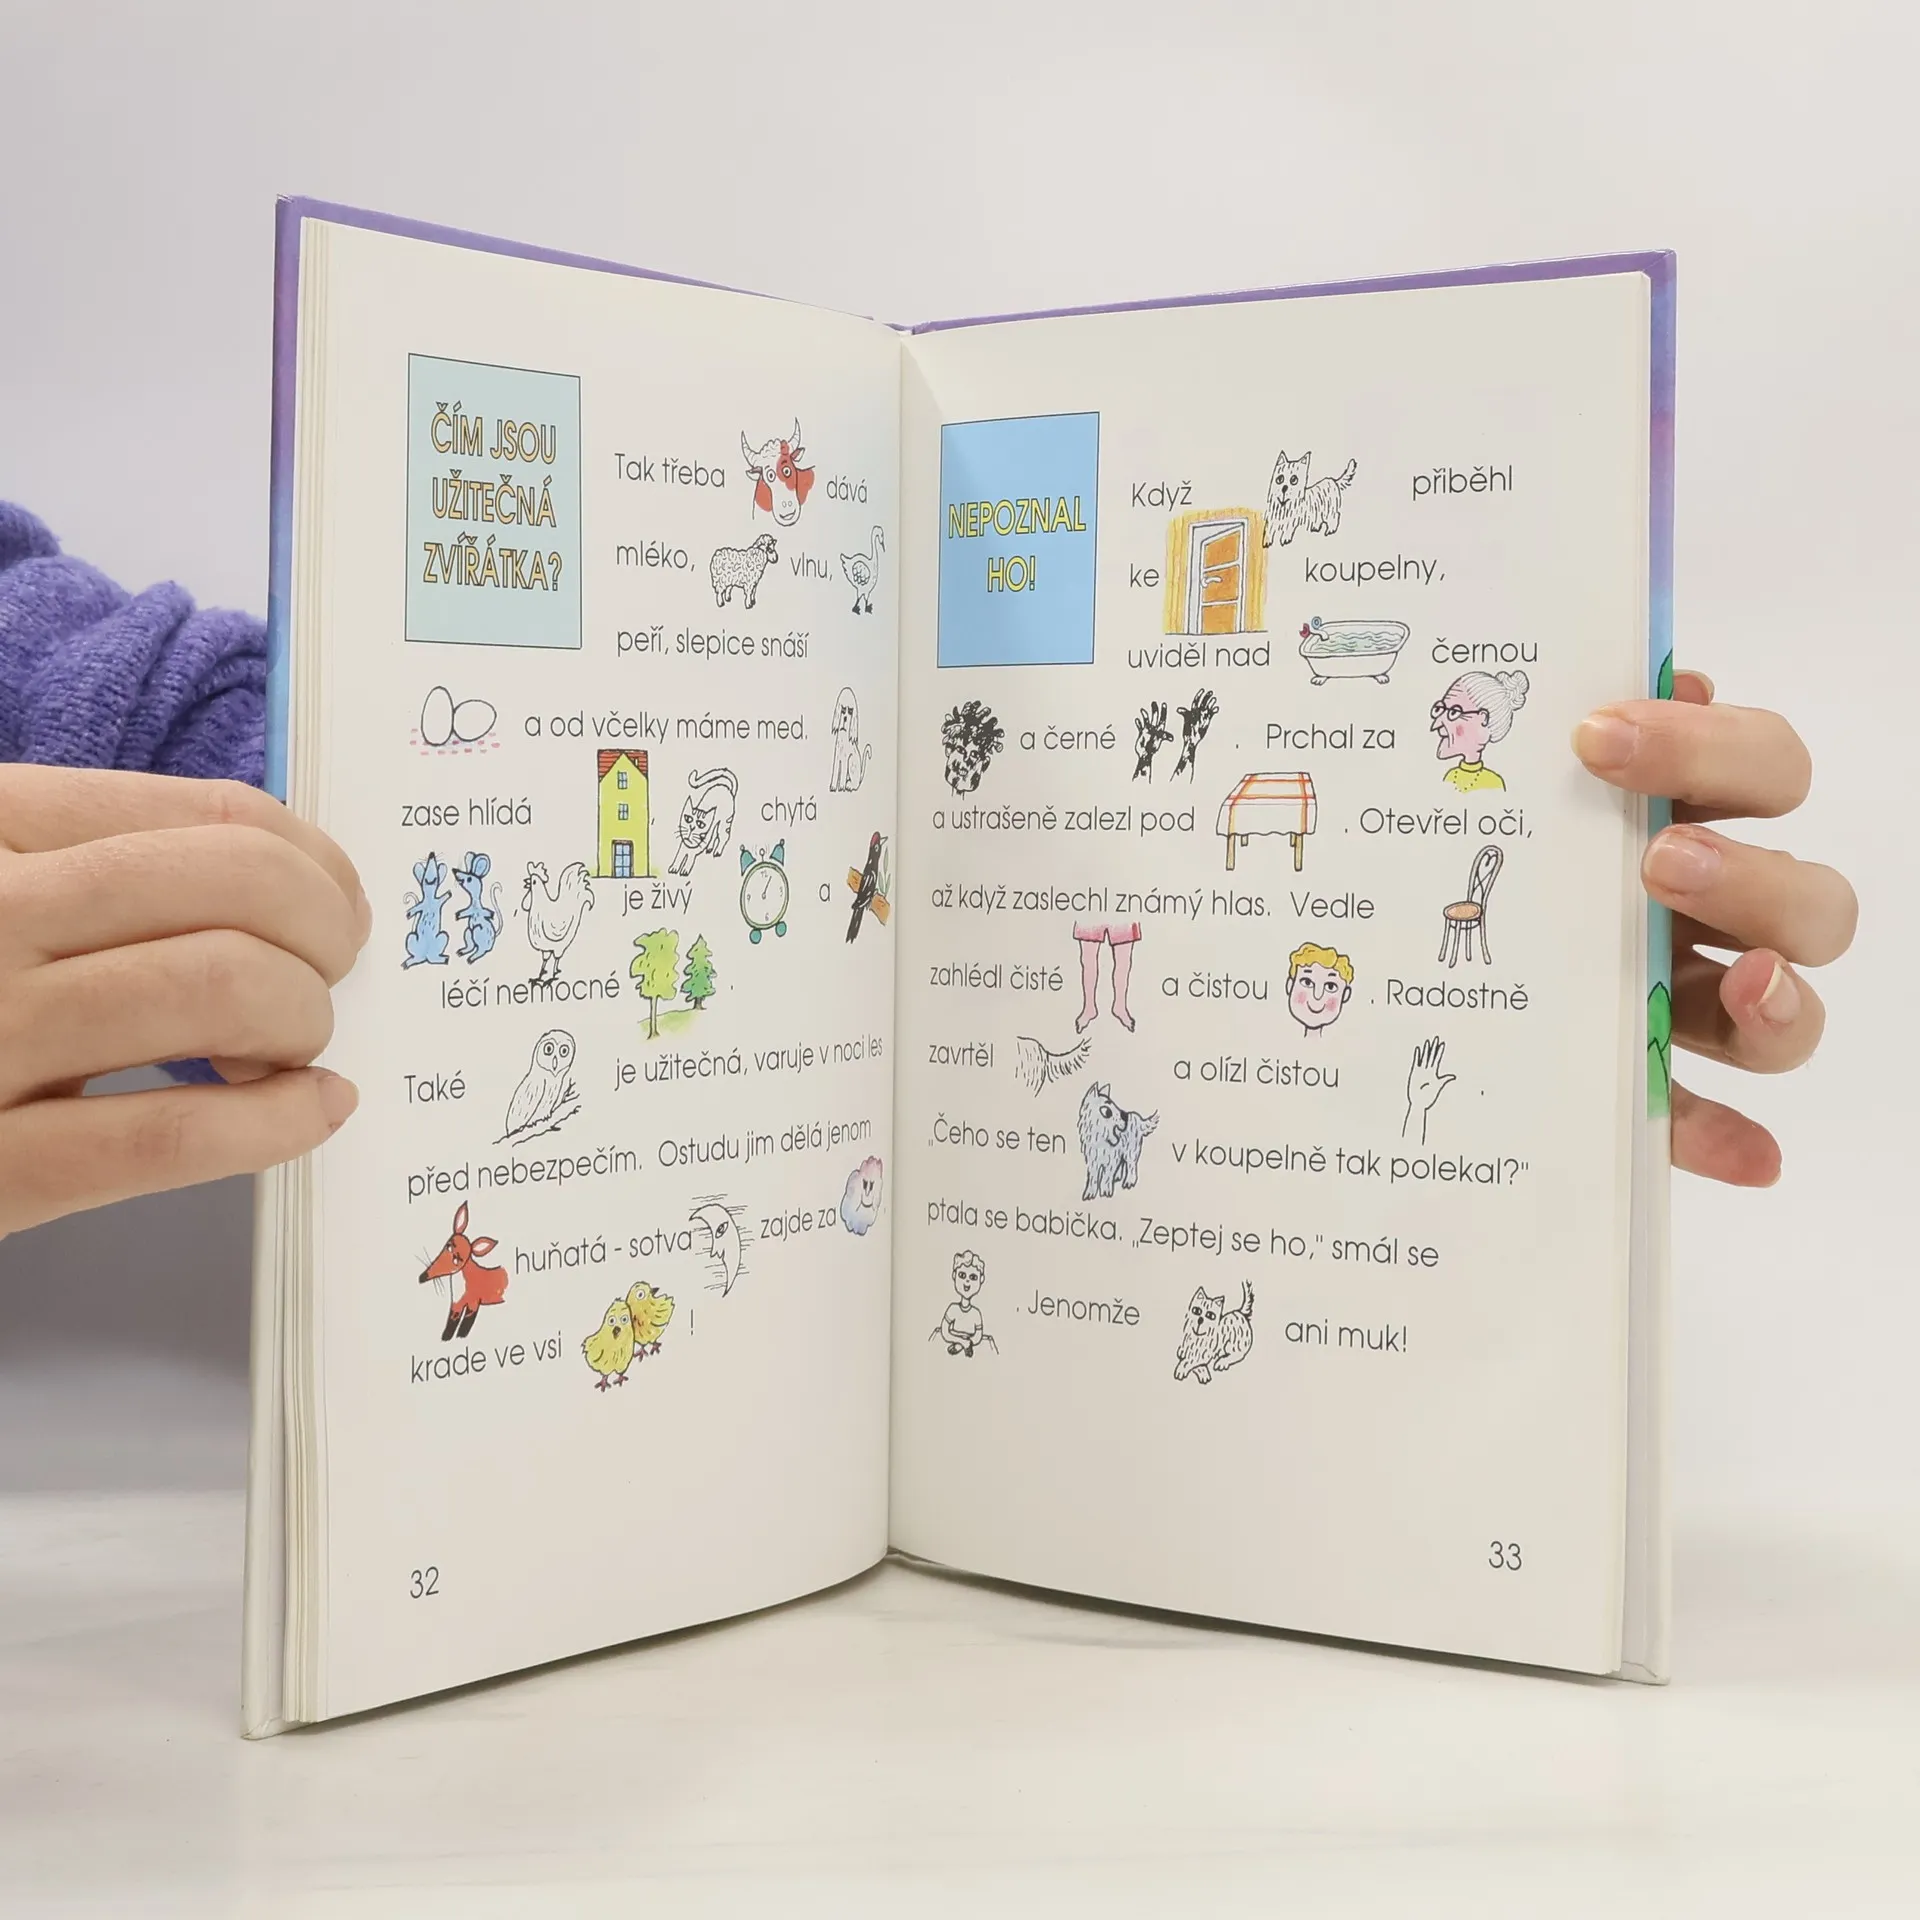 ČÍM JSOU
UŽITEČNÁ
ZVÍŘÁTKA?
Tak třeba dává
mléko, vlnu,
peří, slepice snáší
a od včelky máme med.
zase hlídá , chytá
, je živý a
léčí nemocné .
Také je užitečná, varuje v noci les
před nebezpečím. Ostudu jim dělá jenom
huňatá - sotva zajde za ,
krade ve vsi !
32
NEPOZNAL
HO!
Když přiběhl
ke koupelny,
uviděl nad černou
a černé . Prchal za
a ustrašeně zalezl pod . Otevřel oči,
až když zaslechl známý hlas. Vedle
zahlédl čisté a čistou . Radostně
zavrtěl a olízl čistou .
„Čeho se ten v koupelně tak polekal?"
ptala se babička. „Zeptej se ho," smál se
. Jenomže ani muk!
33